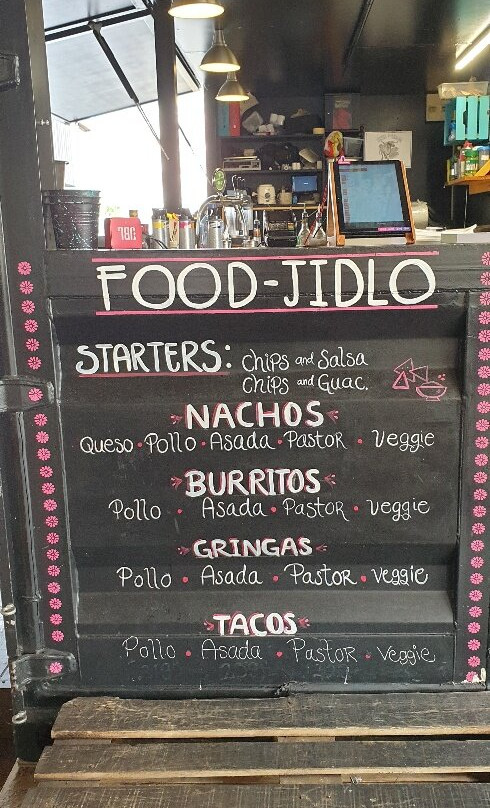 FOOD-JIDLO
STARTERS: Chips and Salsa
Chips and Guac.
NACHOS
Queso • Pollo • Asada • Pastor • Veggie
BURRITOS
Pollo • Asada • Pastor • veggie
GRINGAS
Pollo • Asada • Pastor • veggie
TACOS
Pollo • Asada • Pastor • Veggie